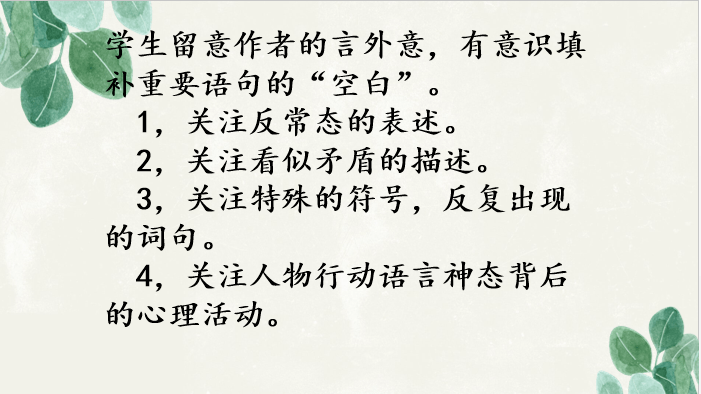 学生留意作者的言外意，有意识填
补重要语句的“空白”。
1，关注反常态的表述。
2，关注看似矛盾的描述。
3，关注特殊的符号，反复出现
的词句。
4，关注人物行动语言神态背后
的心理活动。